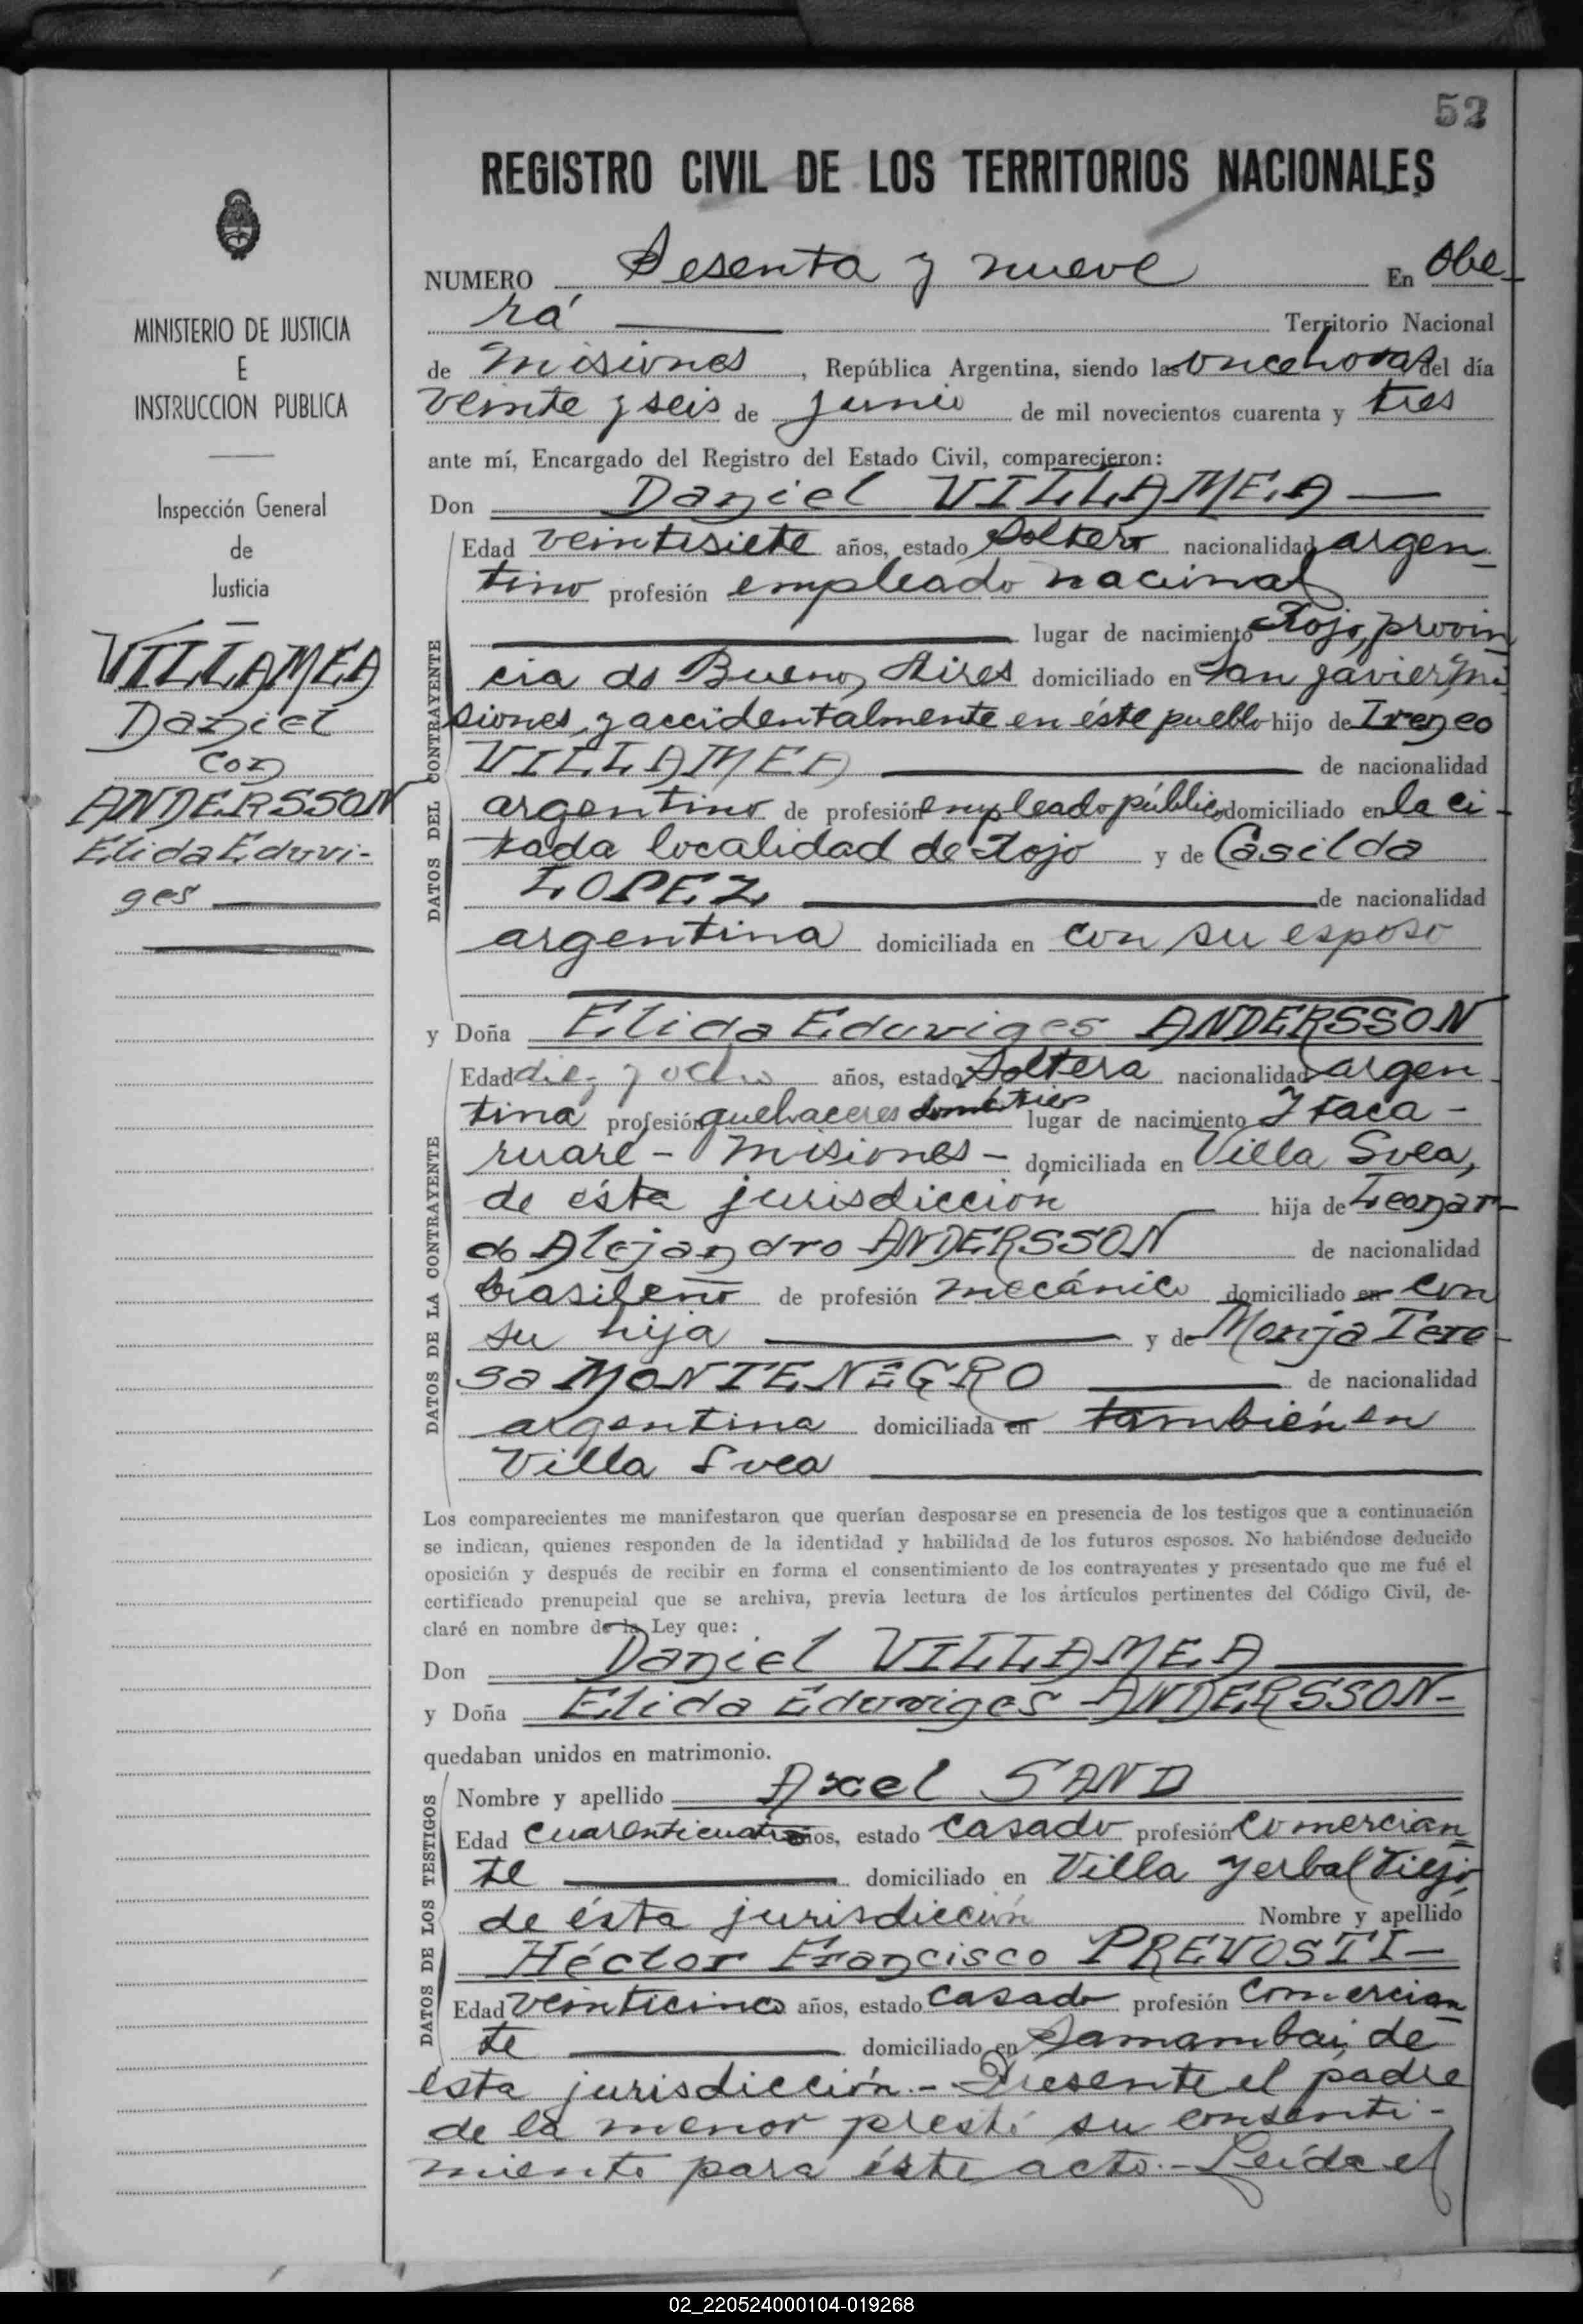 52
REGISTRO CIVIL DE LOS TERRITORIOS NACIONALES
MINISTERIO DE JUSTICIA
E
INSTRUCCION PUBLICA
Inspección General
de
Justicia
VILLAMEA
Daniel
con
ANDERSSON
Elida Eduvi-
ges
NUMERO Sesenta y nueve En Obe-
rá Territorio Nacional
de Misiones, República Argentina, siendo las once horas del día
veinte y seis de junio de mil novecientos cuarenta y tres
ante mí, Encargado del Registro del Estado Civil, comparecieron:
Don Daniel VILLAMEA
DATOS DEL CONTRAYENTE
Edad veintisiete años, estado soltero nacionalidad argen-
tino profesión empleado nacional
lugar de nacimiento Rojo, provin
cia de Buenos Aires domiciliado en San Javier, Mi
siones, y accidentalmente en éste pueblo hijo de Ireneo
VILLAMEA de nacionalidad
argentino de profesión empleado público domiciliado en la ci-
tada localidad de Rojo y de Casilda
LOPEZ de nacionalidad
argentina domiciliada en con su esposo
y Doña Elida Eduviges ANDERSSON
DATOS DE LA CONTRAYENTE
Edad diez y ocho años, estado soltera nacionalidad argen-
tina profesión quehaceres domésticos lugar de nacimiento Itaca-
ruaré - Misiones - domiciliada en Villa Svea,
de ésta jurisdicción hija de Leonar-
do Alejandro ANDERSSON de nacionalidad
brasileño de profesión mecánico domiciliado en con
su hija y de María Tere-
sa MONTENEGRO de nacionalidad
argentina domiciliada en también en
Villa Svea
Los comparecientes me manifestaron que querían desposarse en presencia de los testigos que a continuación
se indican, quienes responden de la identidad y habilidad de los futuros esposos. No habiéndose deducido
oposición y después de recibir en forma el consentimiento de los contrayentes y presentado que me fué el
certificado prenupcial que se archiva, previa lectura de los artículos pertinentes del Código Civil, de-
claré en nombre de la Ley que:
Don Daniel VILLAMEA
y Doña Elida Eduviges ANDERSSON-
quedaban unidos en matrimonio.
DATOS DE LOS TESTIGOS
Nombre y apellido Axel SAND
Edad cuarenticuatro años, estado casado profesión comercian-
te domiciliado en Villa Yerbal Viejo,
de ésta jurisdicción Nombre y apellido
Héctor Francisco PREVOSTI-
Edad veinticinco años, estado casado profesión comercian-
te domiciliado en Samambai, de
esta jurisdicción.- Presente el padre
de la menor prestó su consenti-
miento para éste acto.- Leída el
02_220524000104-019268